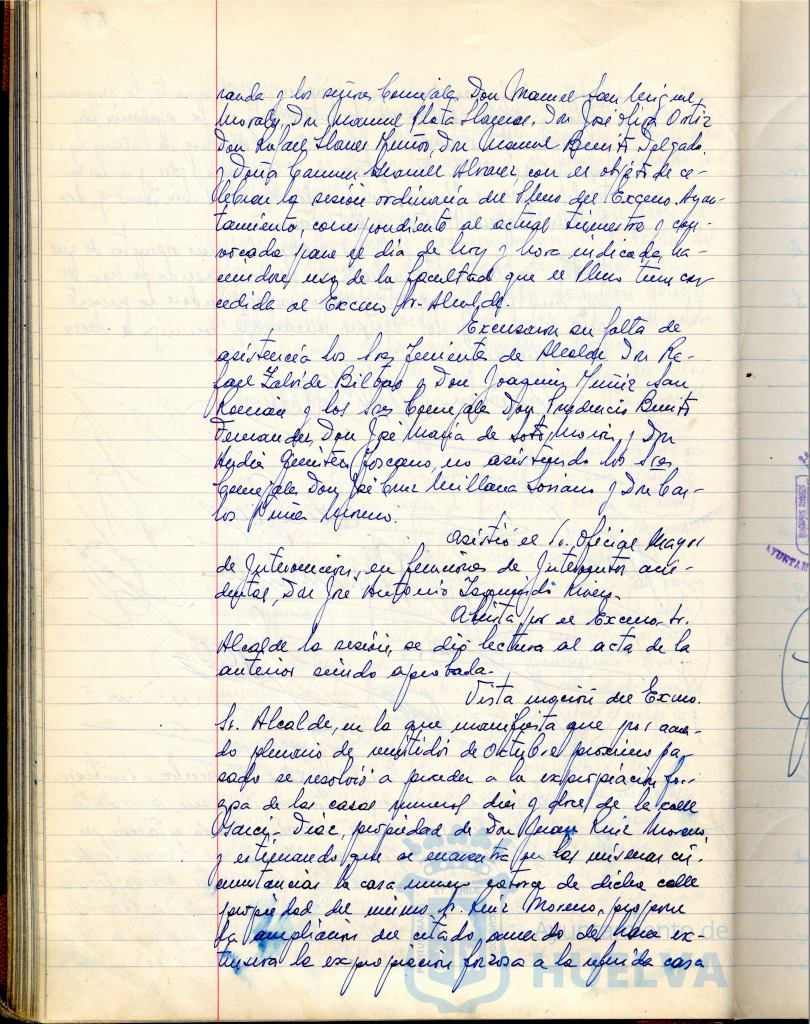 randa y los señores Concejales Don Manuel San Miguel
Morales, Don Manuel Plata Llagenas, Don José Oliva Ortiz
Don Rafael Llanes Muñoz, Don Manuel Benito Delgado
y Doña Carmen Alvarez, con el objeto de ce-
lebrar la sesión ordinaria del Pleno del Excmo. Ayun-
tamiento, correspondiente al actual trimestre y con-
vocada para el día de hoy y hora indicada, ha-
ciendose uso de la facultad que el Pleno tiene con
cedida al Excmo Sr. Alcalde.
Excusaron su falta de
asistencia los Sres Tenientes de Alcalde Don Ra-
fael Zalvide Bilbao y Don Joaquin Muñiz San
Román y los Sres Concejales Don Frederico Benito
Fernandez, Don José María de Soto Morón y Don
Toscano, no asistiendo los Sres
Concejales Don José Cruz Millana Soriano y Don Car-
los Moreno.
Asistió el Sr. Oficial Mayor
de Intervencion, en funciones de Interventor acci-
dental, Don José Antonio Izquierdo Rivera.
Abierta por el Excmo. Sr.
Alcalde la sesión, se dió lectura al acta de la
anterior siendo aprobada.
Vista moción del Excmo.
Sr. Alcalde, en la que manifiesta que por acuer-
do plenario de veintidós de Octubre proximo pa-
sado se resolvió a proceder a la expropiación for-
zosa de las casas numeros diez y doce de la calle
Garci-Diaz, propiedad de Don Juan Ruiz Moreno,
y estimando que se encuentra en las mismas cir-
cunstancias la casa numero catorce de dicha calle
propiedad del mismo Sr. Ruiz Moreno, propone
la ampliación del citado acuerdo de hacer ex-
tensiva la expropiación forzosa a la referida casa
Ayuntamiento de
HUELVA